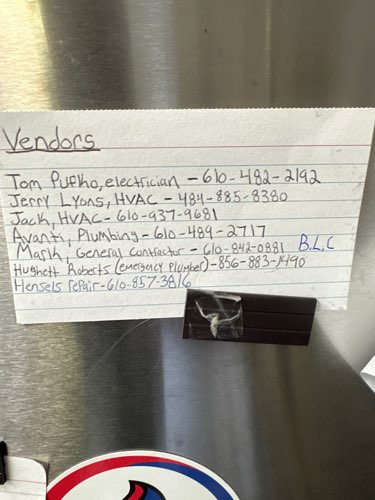 Vendors
Tom Puflho, electrician - 610-482-2192
Jerry Lyons, HVAC - 484-885-8380
Jack, HVAC - 610-937-9681
Avanti, Plumbing - 610-489-2717
Mark, General Contractor - 610-842-0881 B.L.C
Hughett Roberts (emergency Plumber) - 856-883-1490
Hensels repair - 610-857-3816